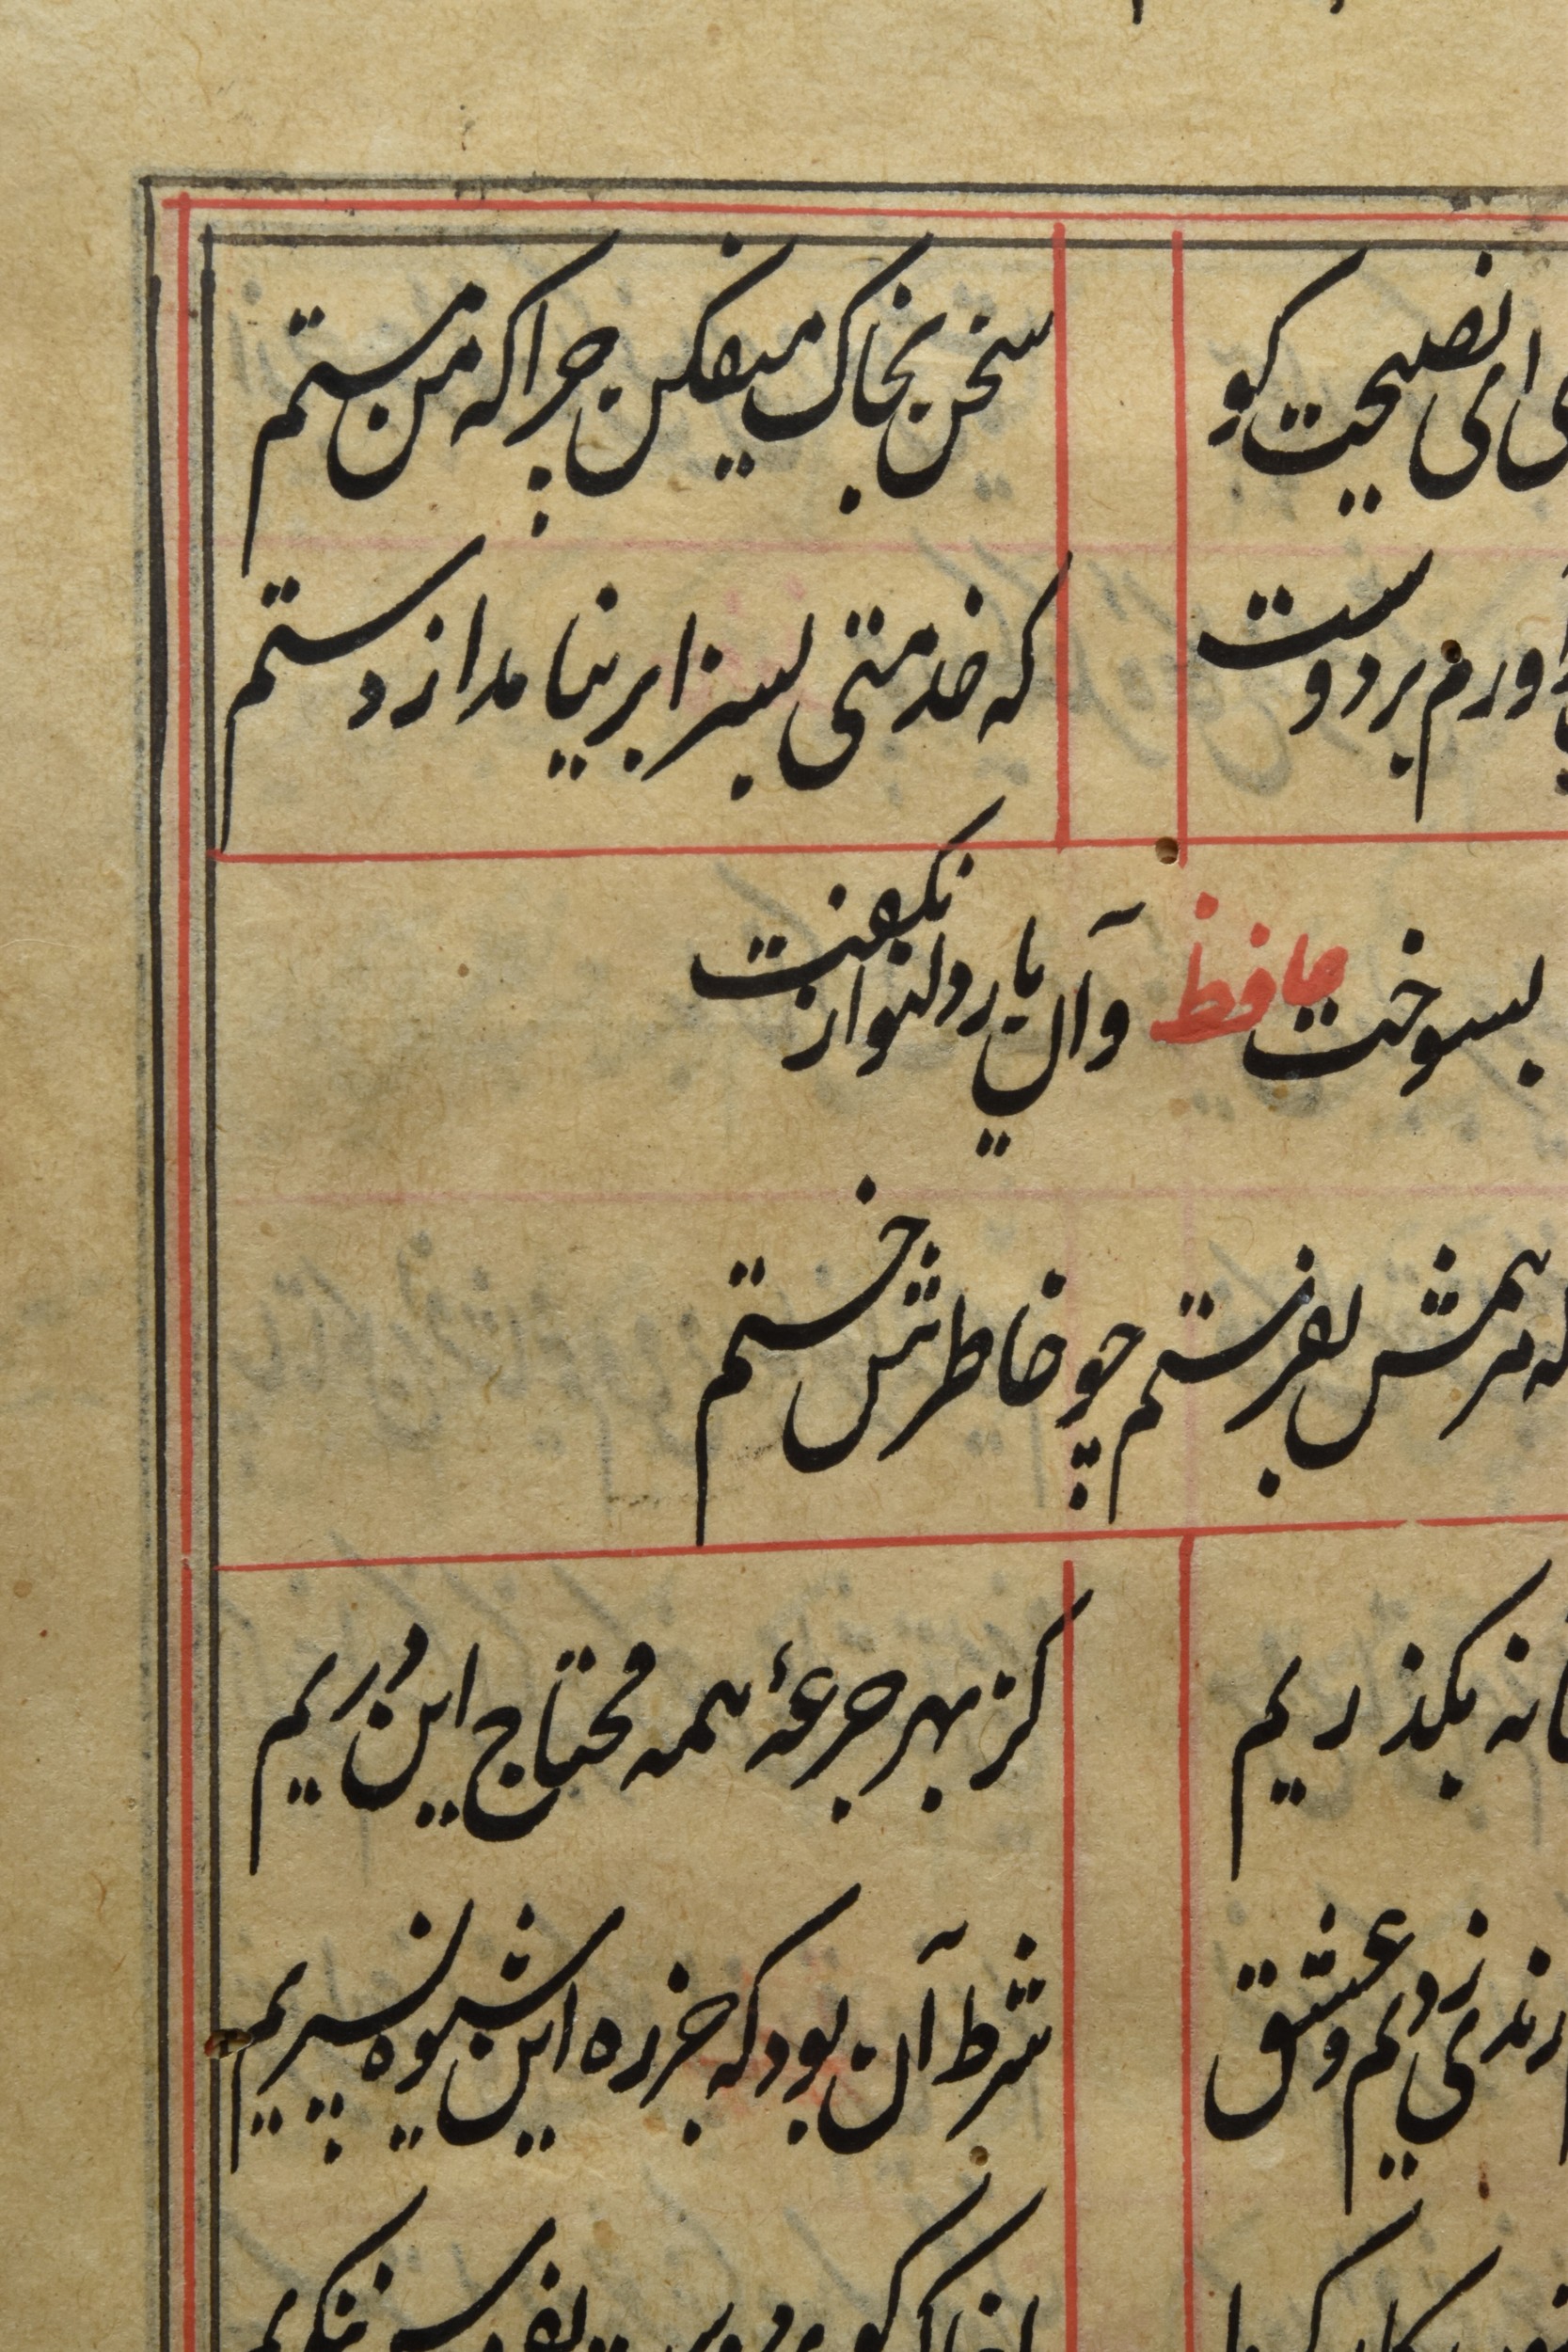 ای نصیحت کو سخن بخاک میفکن چرا که من مستم
اورم بر دوست که خدمتی بسزا بر نیامد از دستم
بسوخت حافظ و آن یار دلنواز نکفت
که مرهمش بفرستم چو خاطرش خستم
بکذریم کز بهر جرعهٔ همه محتاج این دریم
رندی زدیم و عشق شرط آن بود که جز ره این شیوه نسپریم